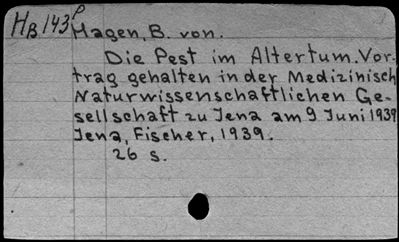 HB 143 P Hagen, B. von.
Die Pest im Altertum. Vor-
trag gehalten in der Medizinisch
Naturwissenschaftlichen Ge-
sellschaft zu Jena am 9 Juni 1939
Jena, Fischer, 1939.
26 s.